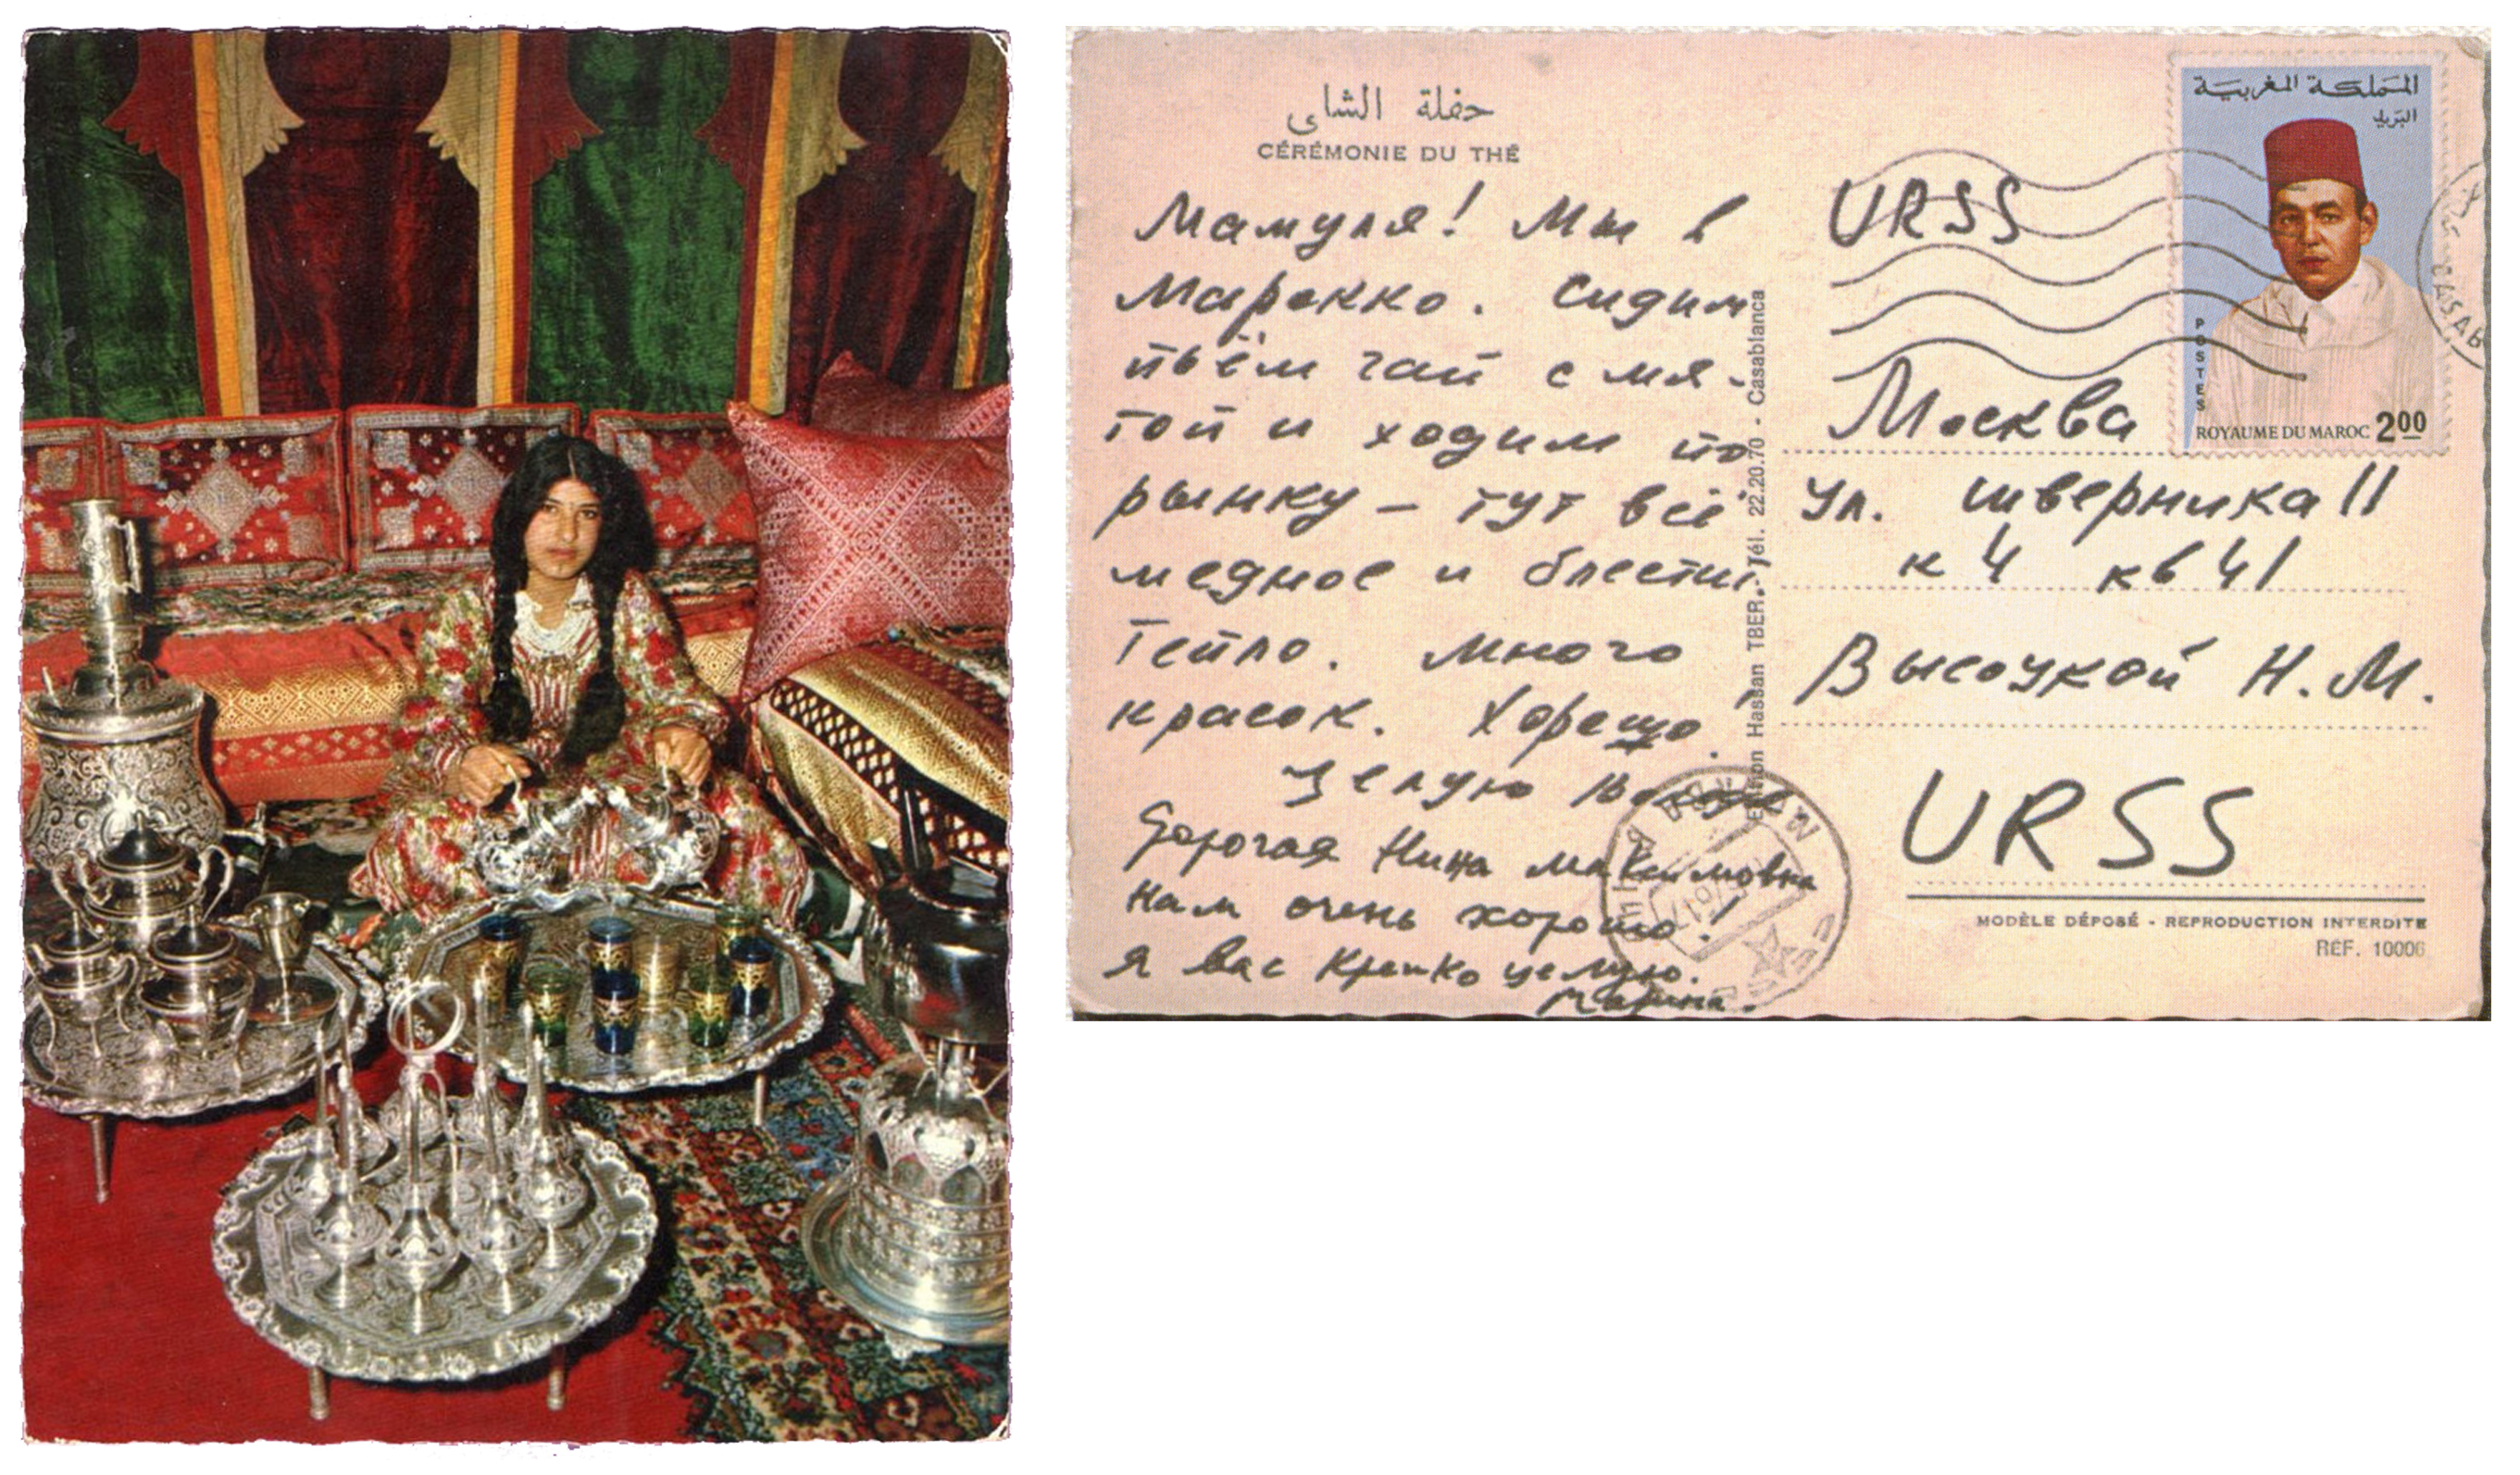 حفلة الشاى
CÉRÉMONIE DU THÉ
Мамуля! Мы в
Марокко. Сидим
пьём чай с мя-
той и ходим по
рынку – тут всё
медное и блестит.
Тепло. Много
красок. Хорошо.
Целую
Дорогая Нина Максимовна
нам очень хорошо!
Я вас крепко целую.
Марина.
Edition Hassan TBER - Tél. 22.20.70 - Casablanca
المملكة المغربية
البريد
POSTES
ROYAUME DU MAROC 200
URSS
Москва
Ул. Шверника 11
к 4 кв 41
Высоцкой Н.М.
URSS
MODÈLE DÉPOSÉ - REPRODUCTION INTERDITE
RÉF. 10006
МОСКВА